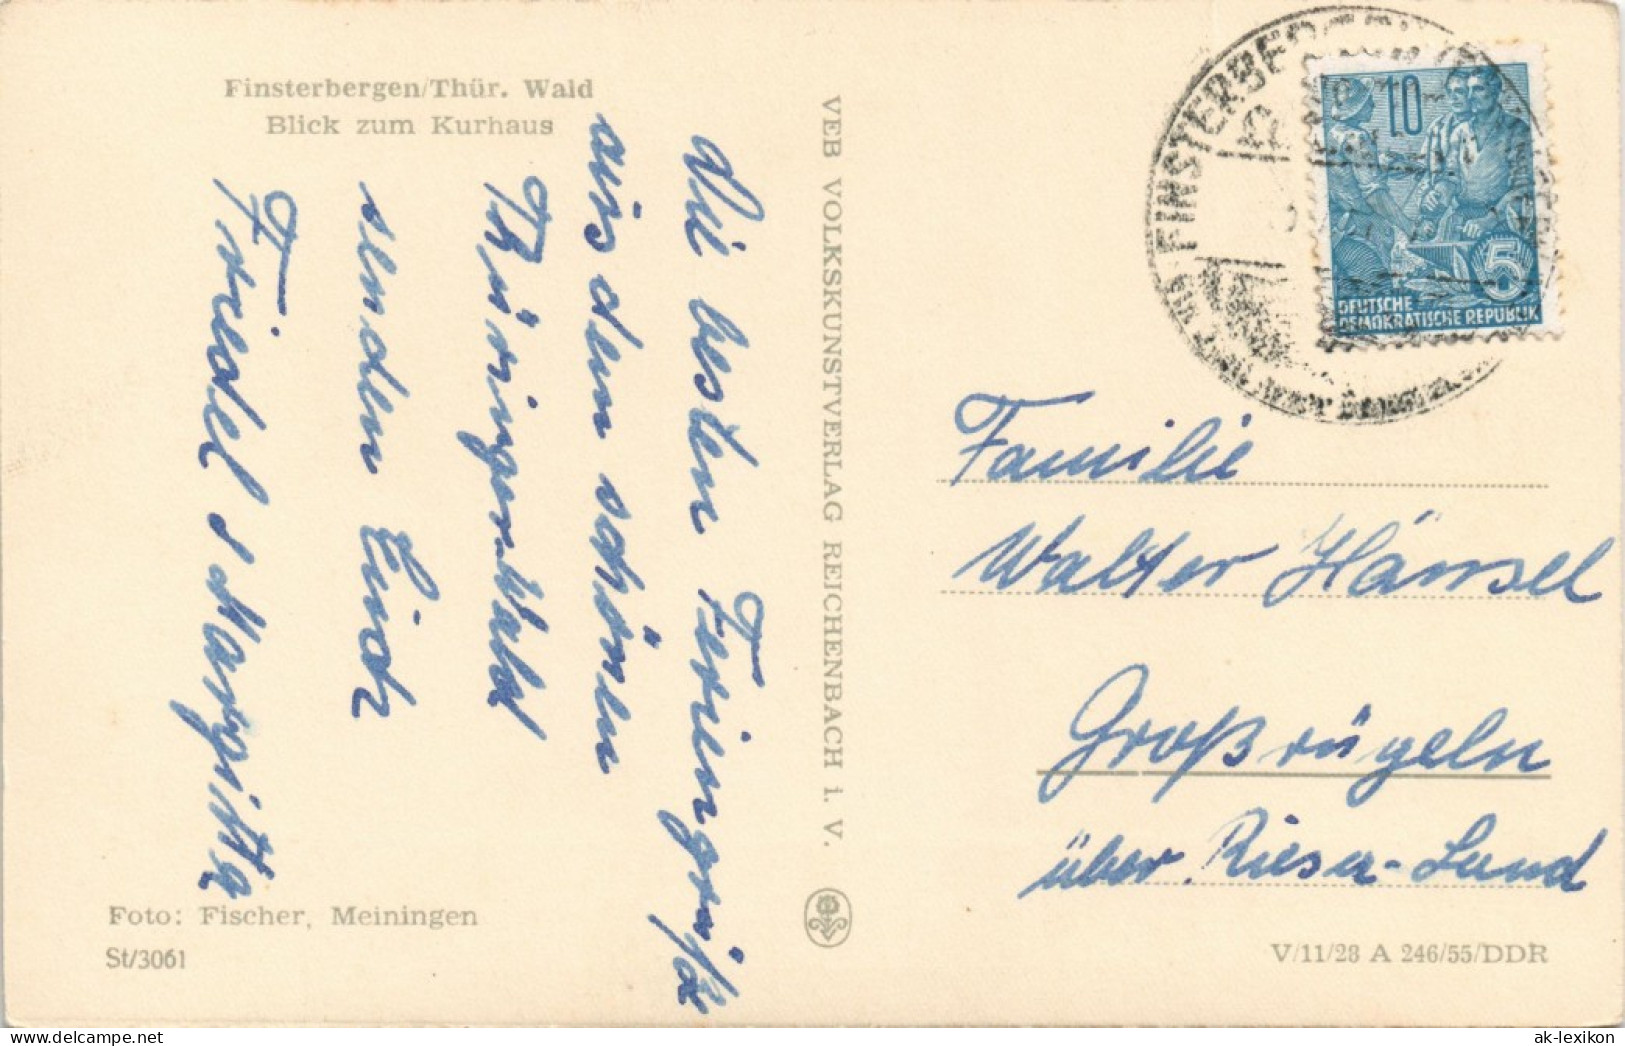 Finsterbergen/Thür. Wald
Blick zum Kurhaus
Die besten Feriengrüße
aus dem schönen
Thüringer Wald
senden Euch
Friedel & Margitta
Foto: Fischer, Meiningen
St/3061
VEB VOLKSKUNSTVERLAG REICHENBACH i. V.
FINSTERBERGEN
10
5
DEUTSCHE
DEMOKRATISCHE REPUBLIK
Familie
Walter Hänsel
Großrügeln
über Riesa-Land
V/11/28 A 246/55/DDR
hippostcard.com
ak-lexikon